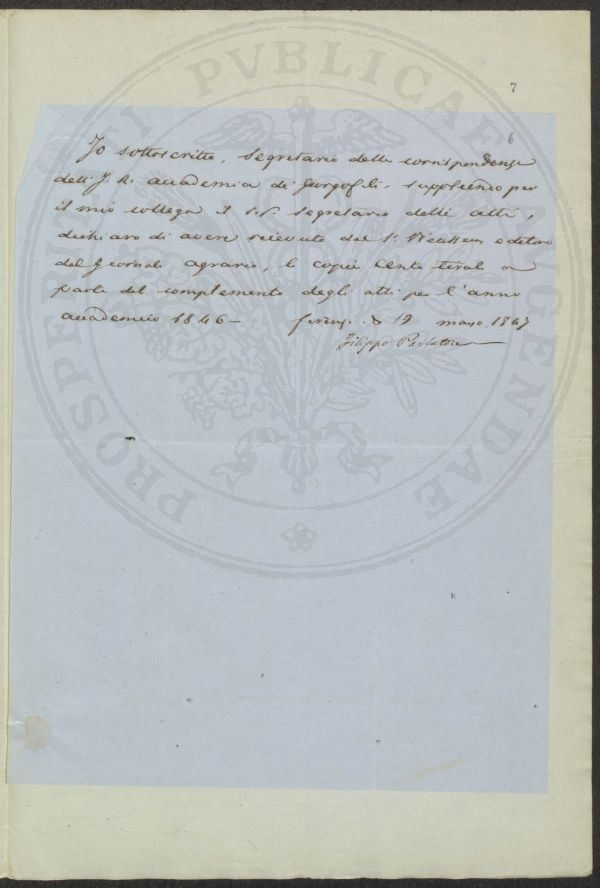 7
6
Io sottoscritto, segretario delle corrispondenze
dell'I. R. accademia di Georgofili, supplendo per
il mio collega il segretario delli atti,
dichiaro di avere ricevuto dal S. Vieusseux editore
del Giornale agrario, le copie cento
parte del complemento degli atti per l'anno
accademico 1846 —
Firenze 19 marzo 1847
Filippo Parlatore
PROSPERITATI PVBLICAE AVGENDAE